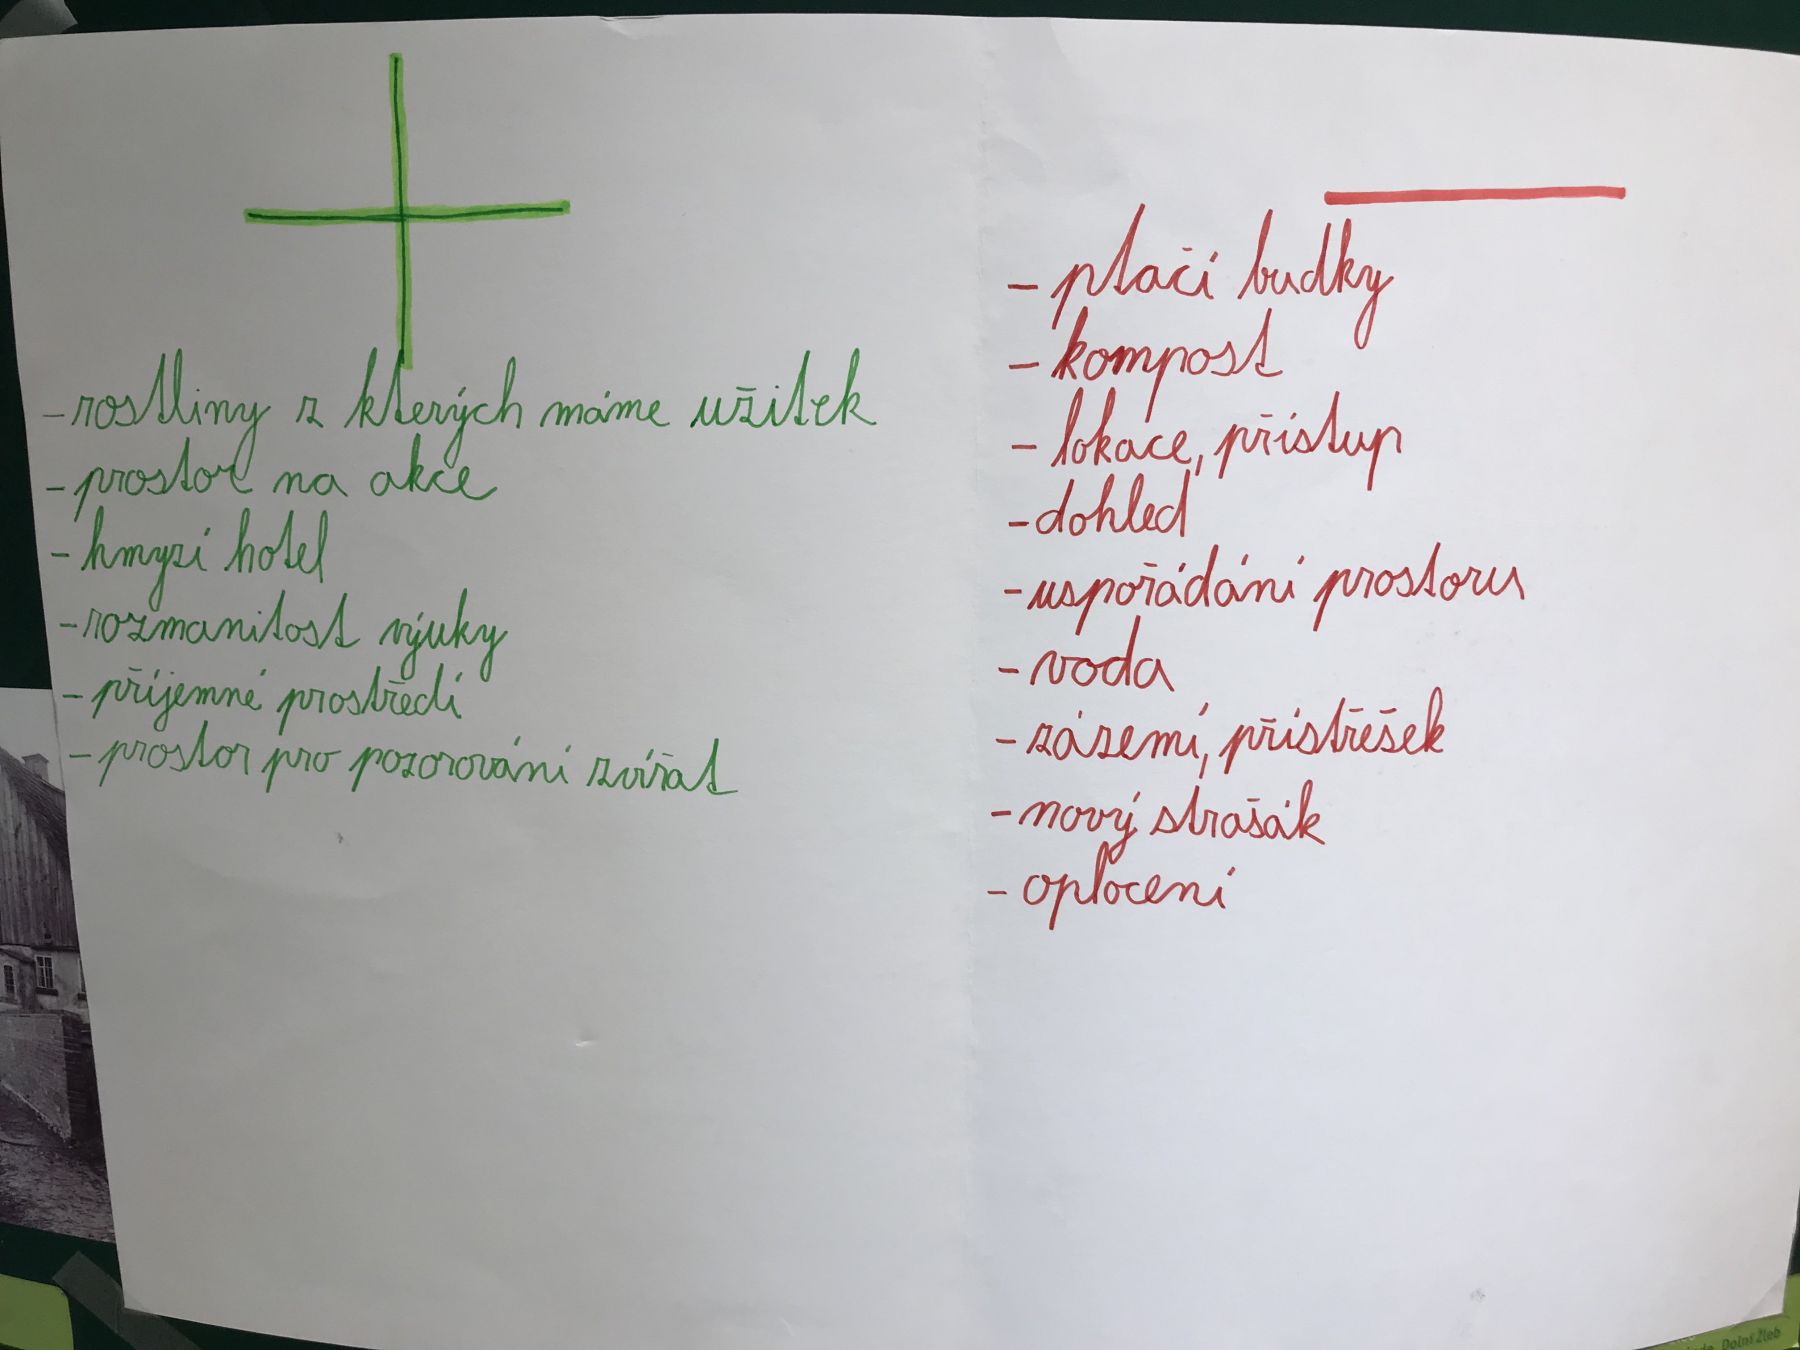 - rostliny z kterých máme užitek
- prostor na akce
- hmyzí hotel
- rozmanitost výuky
- příjemné prostředí
- prostor pro pozorování zvířat
- ptačí budky
- kompost
- lokace, přístup
- dohled
- uspořádání prostoru
- voda
- zázemí, přístřešek
- nový strašák
- oplocení
Dolní Žleb